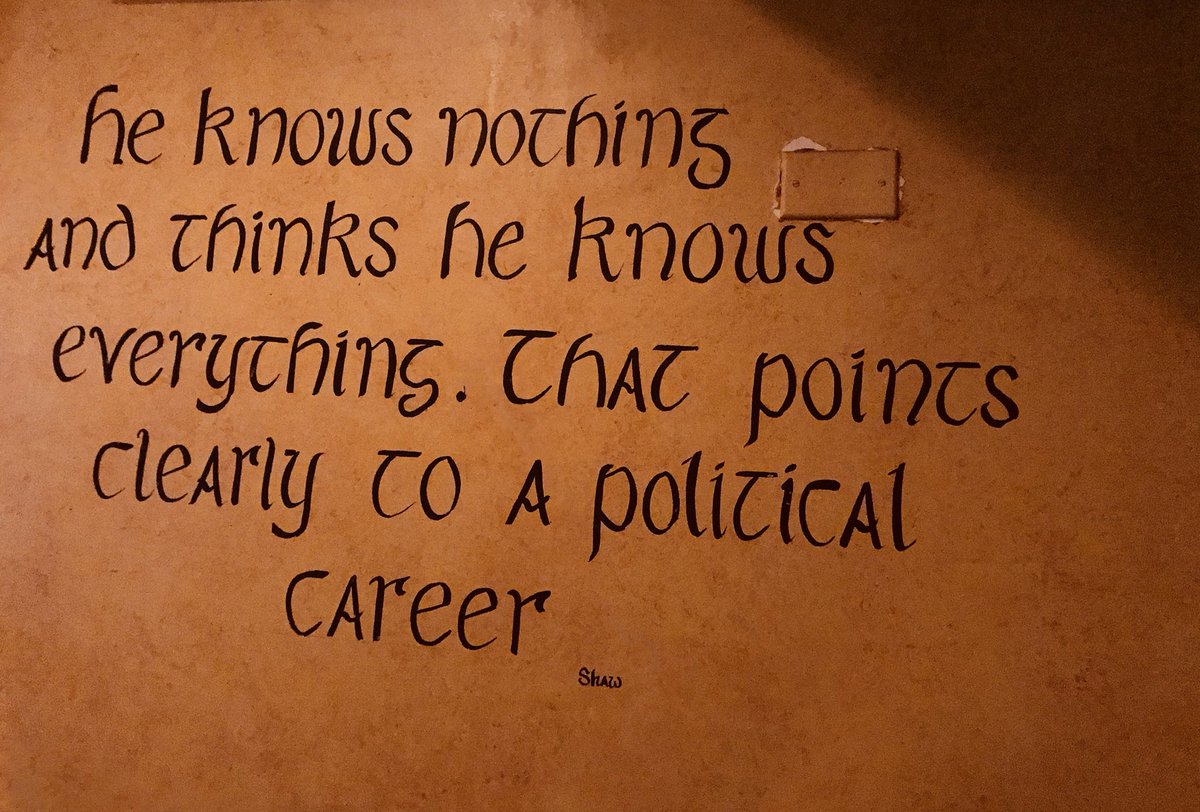 he knows nothing
and thinks he knows
everything. That points
clearly to a political
career
Shaw